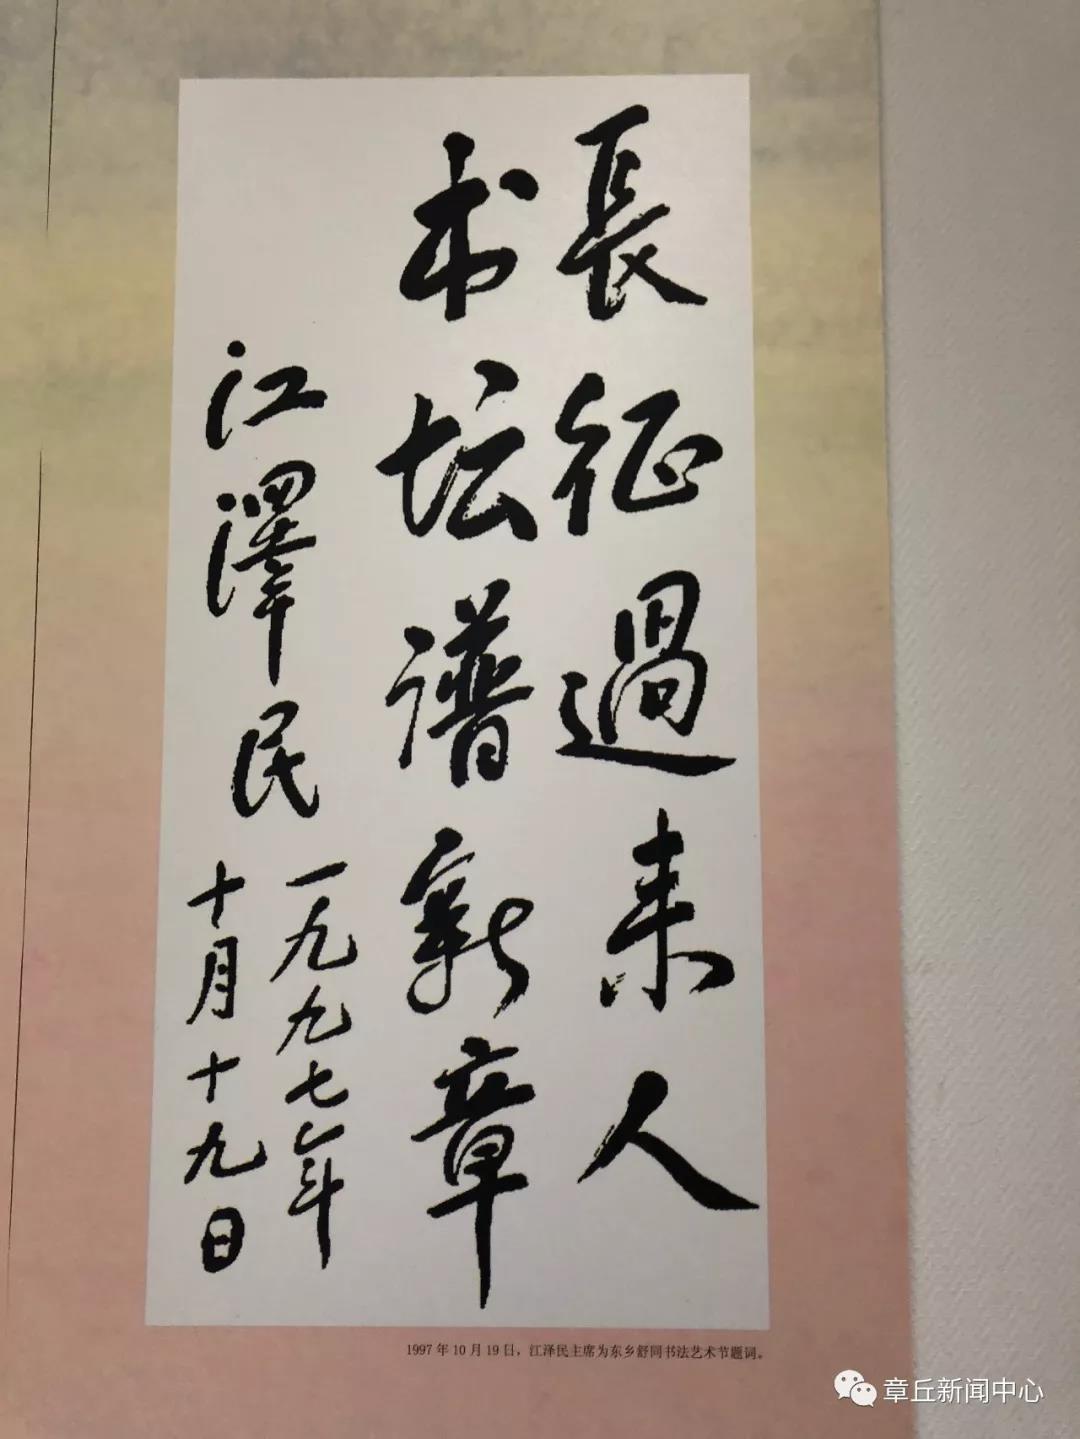 長征過来人
书坛谱新章
江澤民
一九九七年
十月十九日
1997年10月19日，江泽民主席为东乡舒同书法艺术节题词。
章丘新闻中心